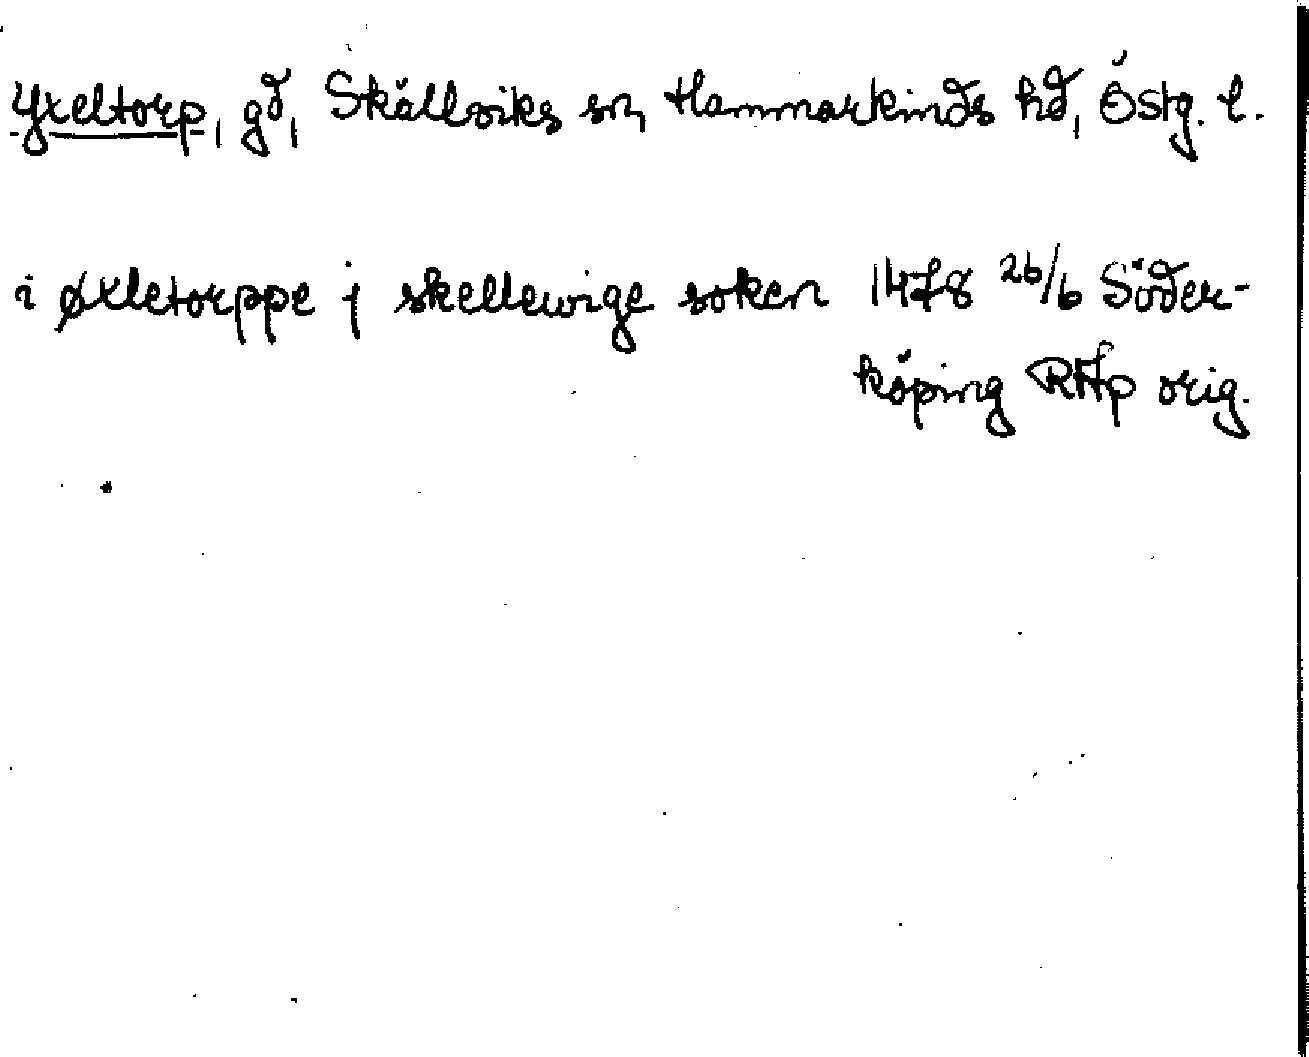 Yxeltorp, gd, Skällviks sn, Hammarkinds hd, Östg. l.
i øxletorppe j skellewige soken 1478 26/6 Söder-
köping RAp orig.